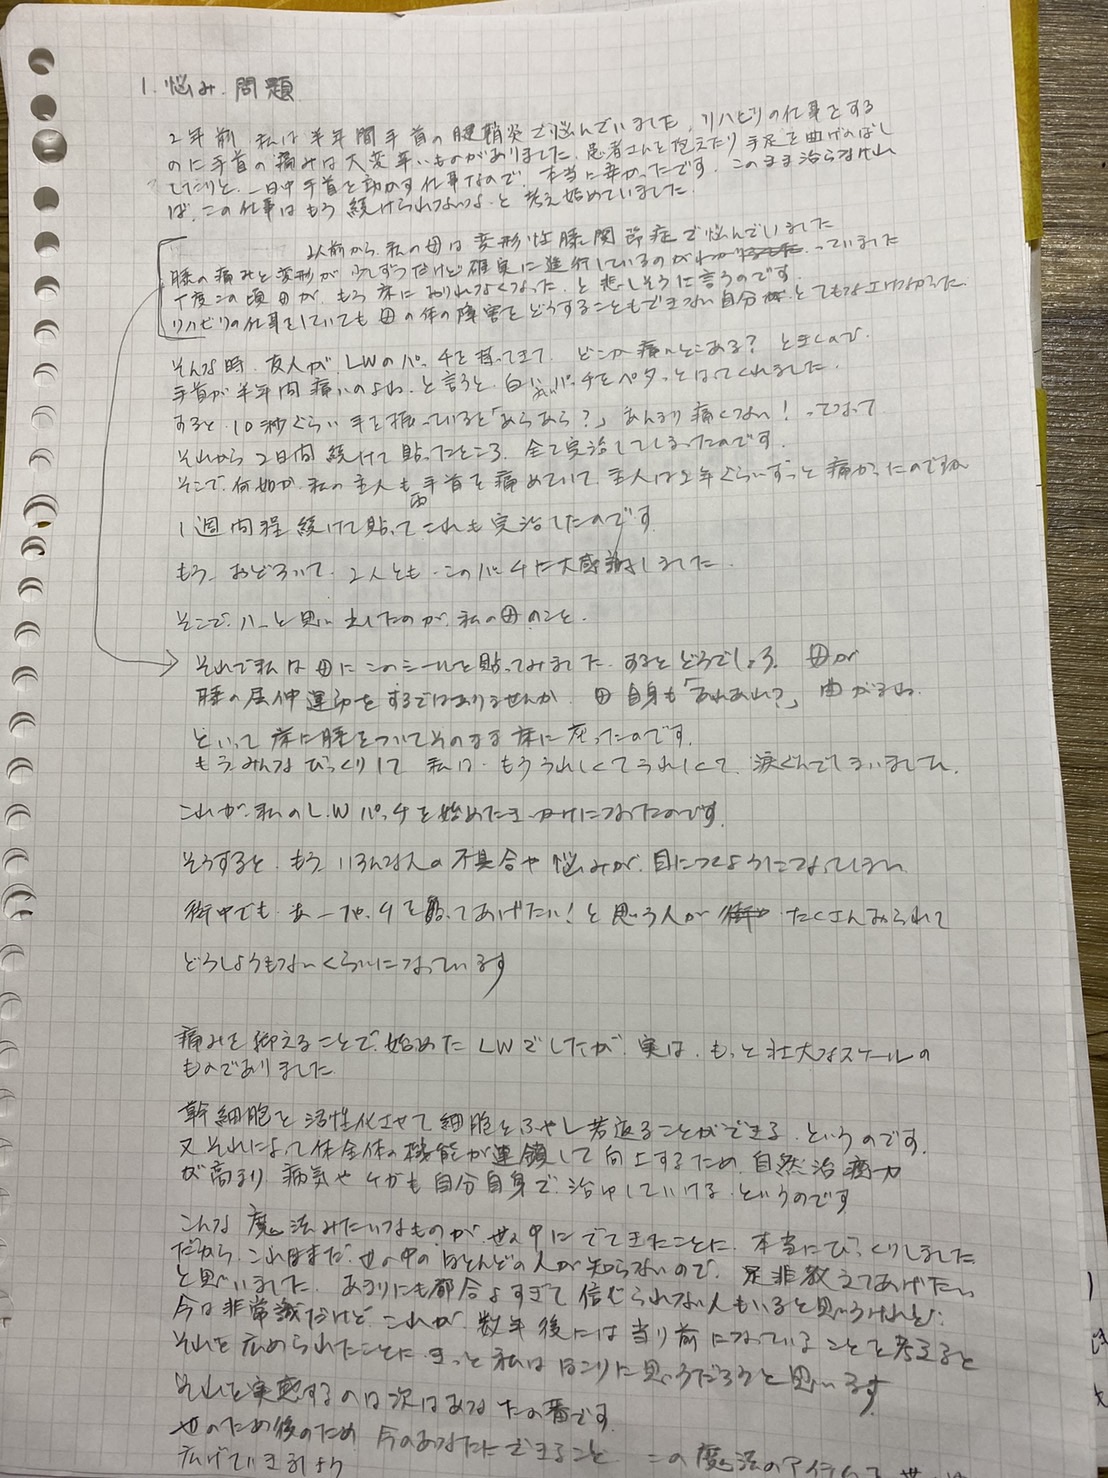 1. 悩み.問題
2年前 私は半年間手首の腱鞘炎で悩んでいました. リハビリの仕事をする
のに手首の痛みは大変辛いものがありました. 患者さんを抱えたり 手足を曲げのばし
したりと、一日中手首を動かす仕事なので 本当に辛かったです. このまま治らなけれ
ば、この仕事はもう続けられないな、と考え始めていました.
以前から 私の母は変形性膝関節症で悩んでいました
膝の痛みと変形が少しずつだけど確実に進行しているのがわかっていました
丁度この頃母が、もう床におりれなくなった、と悲しそうに言うのです.
リハビリの仕事をしていても母の体の障害をどうすることもできない自分がとても
そんな時、友人がLWのパッチを持ってきて どこか痛いとこある? ときくので
手首が半年間痛いのよね、と言うと、白いパッチをペタっとはってくれました.
すると、10秒ぐらい手を振っていると「あらあら?」あんまり痛くない! ってなって
それから2日間続けて貼ったところ、全て完治してしまったのです.
そこで、何故か私の主人も手首を痛めていて、主人は2年ぐらいずっと痛かったのですが
1週間程続けて貼ってこれも完治したのです.
もう、おどろいて、2人とも、このパッチに大感謝しました.
そこで、ハッと思い出したのが、私の母のこと.
それで私は母にこのシールを貼ってみました. するとどうでしょう. 母が
膝の屈伸運動をするではありませんか 母自身も「あれあれ?」曲がるね.
といって床に膝をついてそのまま床に座ったのです.
もうみんなびっくりして 私は、もううれしくてうれしくて、涙ぐんでしまいました.
これが、私のLWパッチを始めたきっかけになったのです.
そうすると、もう いろんな人の不具合や悩みが、目につくようになってしまい
街中でも、あーパッチを貼ってあげたい! と思う人が たくさんおられて
どうしようもないくらいになっています
痛みを抑えることで始めたLWでしたが、実は、もっと壮大なスケールの
ものでありました
幹細胞を活性化させて細胞をふやし若返ることができる、というのです.
又それによって体全体の機能が連鎖して向上するため、自然治癒力
が高まり 病気やケガも自分自身で治していける、というのです
こんな魔法みたいなものが世の中にでてきたことに、本当にびっくりしました
だから、これはまだ、世の中のほとんどの人が知らないので、是非教えてあげたい
と思いました. あまりにも都合よすぎて信じられない人もいると思うけれど、
今は非常識だけど、これが、数年後には当り前になっていることを考えると
それを広められたことに、きっと私はほこりに思うだろうと思います.
それを実感するのは次はあなたの番です.
世のため後のため 今のあなたにできること この魔法のアイテムを
広げていきましょう